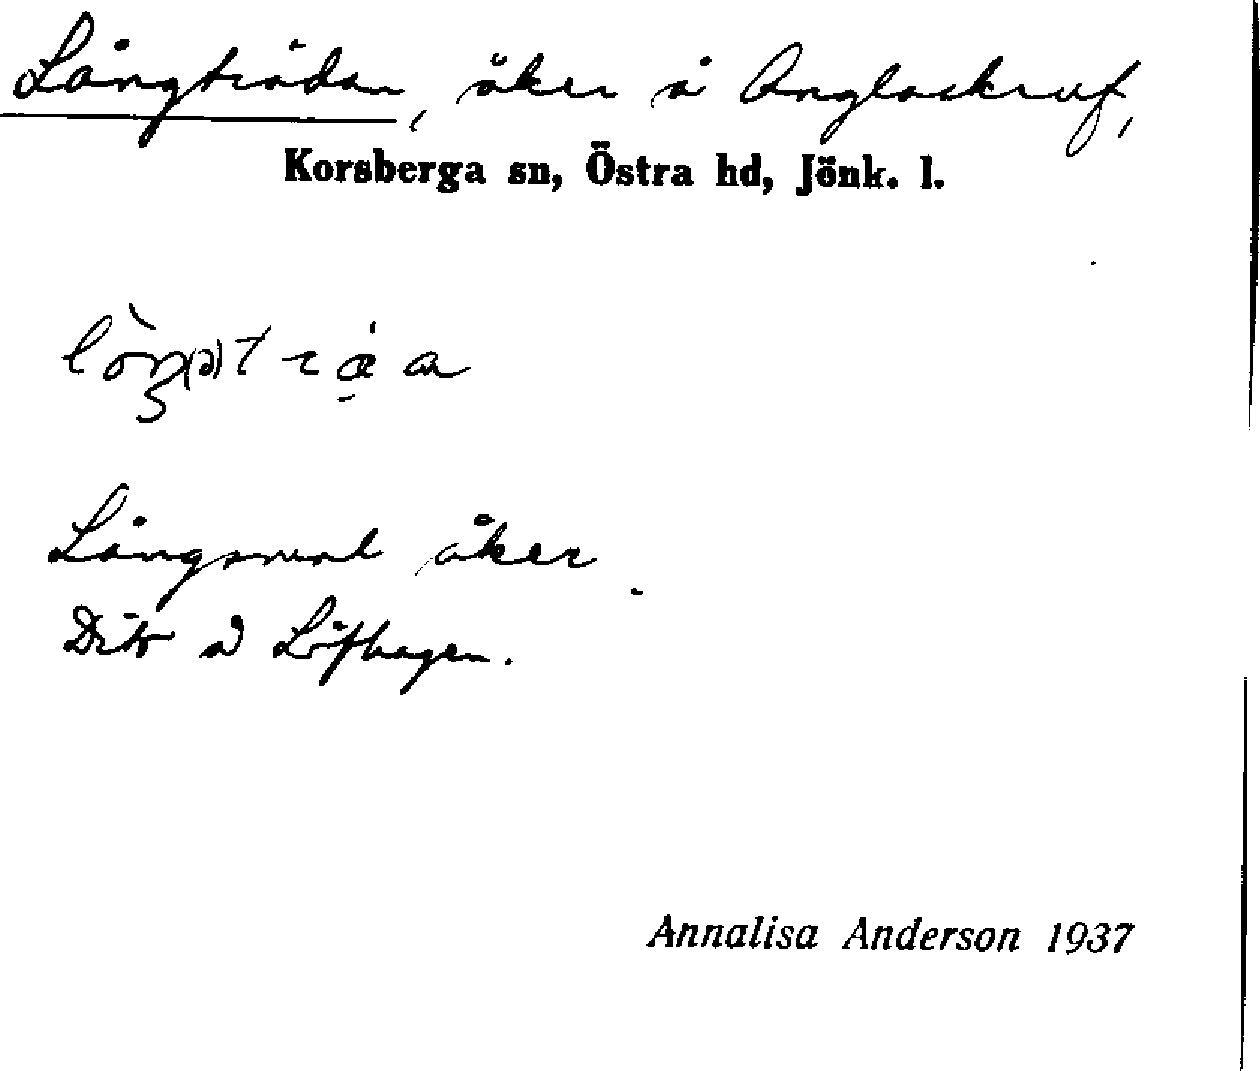 Långträdan, åker å Anglaskruf,
Korsberga sn, Östra hd, Jönk. l.
Långsmal åker
Dito å Löfhagen.
Annalisa Anderson 1937